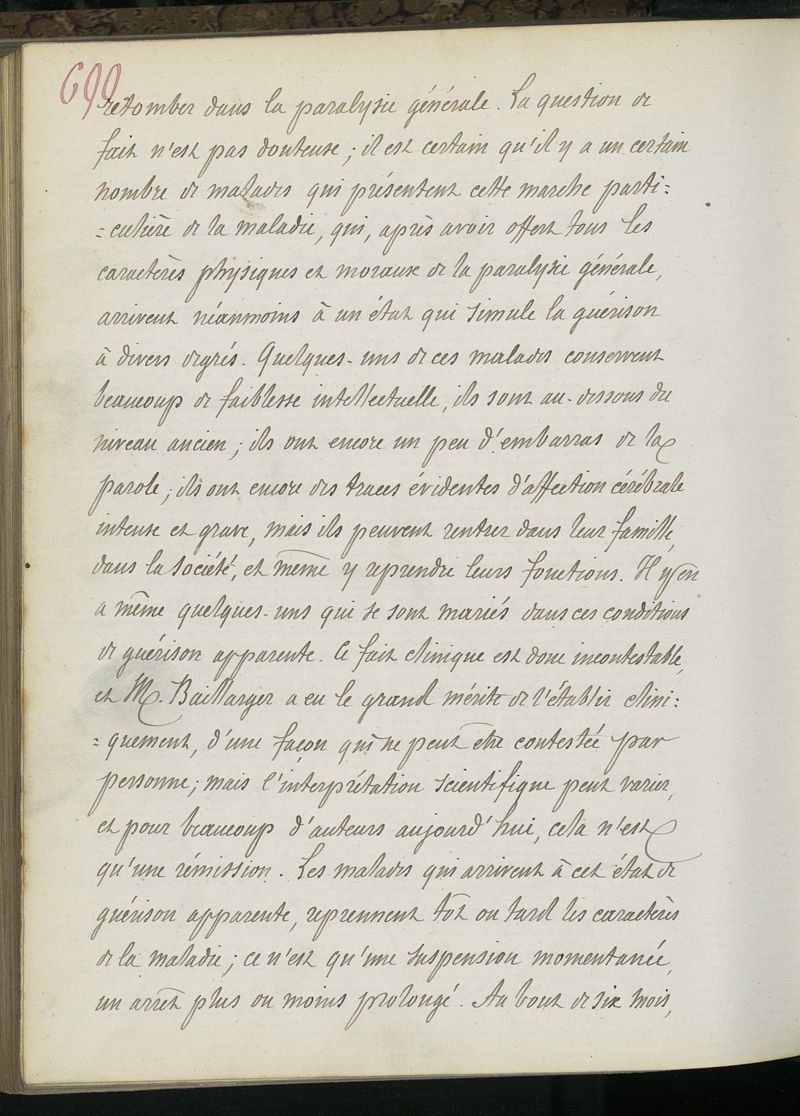 699
retomber dans la paralysie générale. La question de
fait n'est pas douteuse ; il est certain qu'il y a un certain
nombre de malades qui présentent cette marche parti=
=culière de la maladie, qui, après avoir offert tous les
caractères physiques et moraux de la paralysie générale,
arrivent néanmoins à un état qui simule la guérison
à divers degrés. Quelques-uns de ces malades conservent
beaucoup de faiblesse intellectuelle, ils sont au-dessous du
niveau ancien ; ils ont encore un peu d'embarras de la
parole ; ils ont encore des traces évidentes d'affection cérébrale
intense et grave, mais ils peuvent rentrer dans leur famille,
dans la société, et même y reprendre leurs fonctions. Il y en
a même quelques-uns qui se sont mariés dans ces conditions
de guérison apparente. Ce fait clinique est donc incontestable,
et M. Baillarger a eu le grand mérite de l'établir clini=
=quement, d'une façon qui ne peut être contestée par
personne ; mais l'interprétation scientifique peut varier,
et pour beaucoup d'auteurs aujourd'hui, cela n'est
qu'une rémission. Les malades qui arrivent à cet état de
guérison apparente, reprennent tôt ou tard les caractères
de la maladie ; ce n'est qu'une suspension momentanée,
un arrêt plus ou moins prolongé. Au bout de six mois,